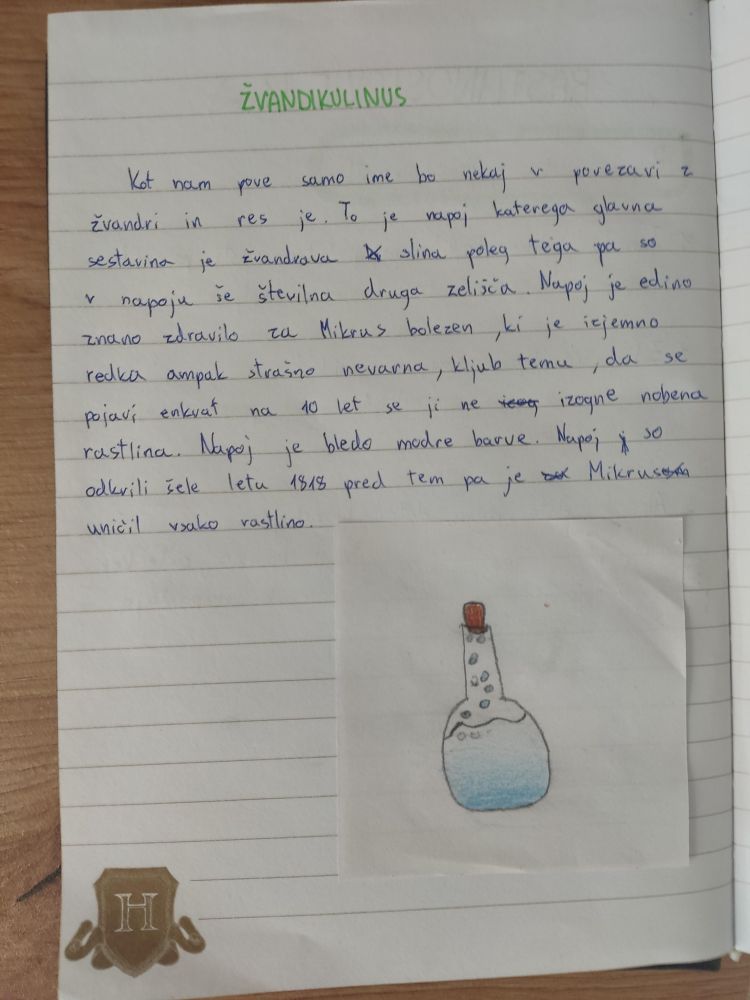 ŽVANDIKULINUS
Kot nam pove samo ime bo nekaj v povezavi z
žvandri in res je. To je napoj katerega glavna
sestavina je žvandrava slina poleg tega pa so
v napoju še številna druga zelišča. Napoj je edino
znano zdravilo za Mikrus bolezen, ki je izjemno
redka ampak strašno nevarna, kljub temu, da se
pojavi enkrat na 10 let se ji ne izogne nobena
rastlina. Napoj je bledo modre barve. Napoj so
odkrili šele letu 1818 pred tem pa je Mikrus
uničil vsako rastlino.
H